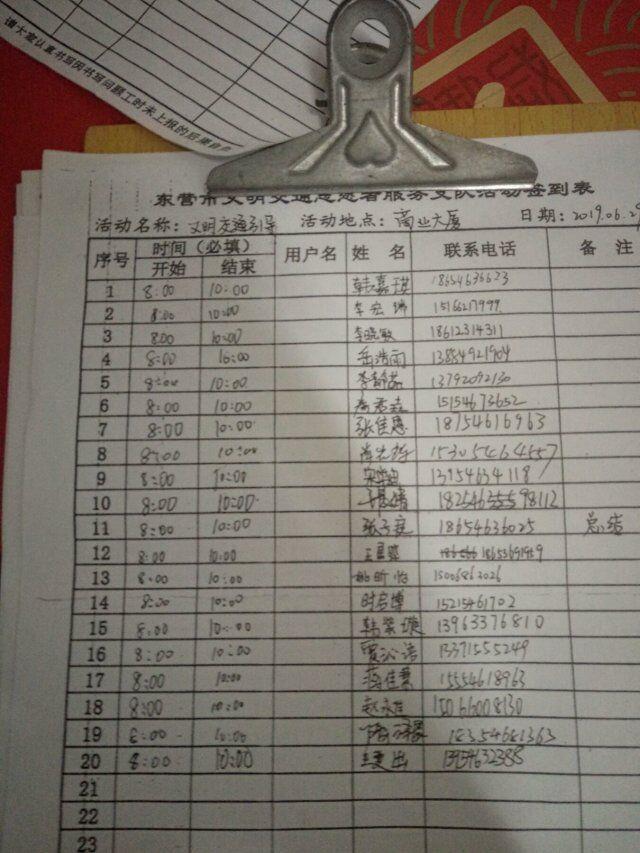 请大家认真书写因书写问题工时未上报的后果自负
东营市文明交通志愿者服务支队活动签到表
活动名称：文明交通引导 活动地点：商业大厦 日期：2019.06.29
序号 时间（必填） 用户名 姓名 联系电话 备注
开始 结束
1 8:00 10:00 韩嘉琪 18654636623
2 8:00 10:00 李宏瑞 15166217999
3 8:00 10:00 李晓敏 18612314311
4 8:00 10:00 岳浩雨 13854921904
5 8:00 10:00 李静茹 13792092130
6 8:00 10:00 15154673652
7 8:00 10:00 张佳惠 18754616963
8 8:00 10:00 15305464557
9 8:00 10:00 13954634118
10 8:00 10:00 98112
11 8:00 10:00 张子庭 18654636025 总结
12 8:00 10:00
13 8:00 10:00 姚昕怡 15006862026
14 8:00 10:00 时启博 15215461702
15 8:00 10:00 韩紫璇 13963376810
16 8:00 10:00 贾沁语 13371555249
17 8:00 10:00 蒋佳熹 15554618963
18 8:00 10:00 15066008130
19 8:00 10:00 18354681363
20 8:00 10:00 13954632388
21
22
23